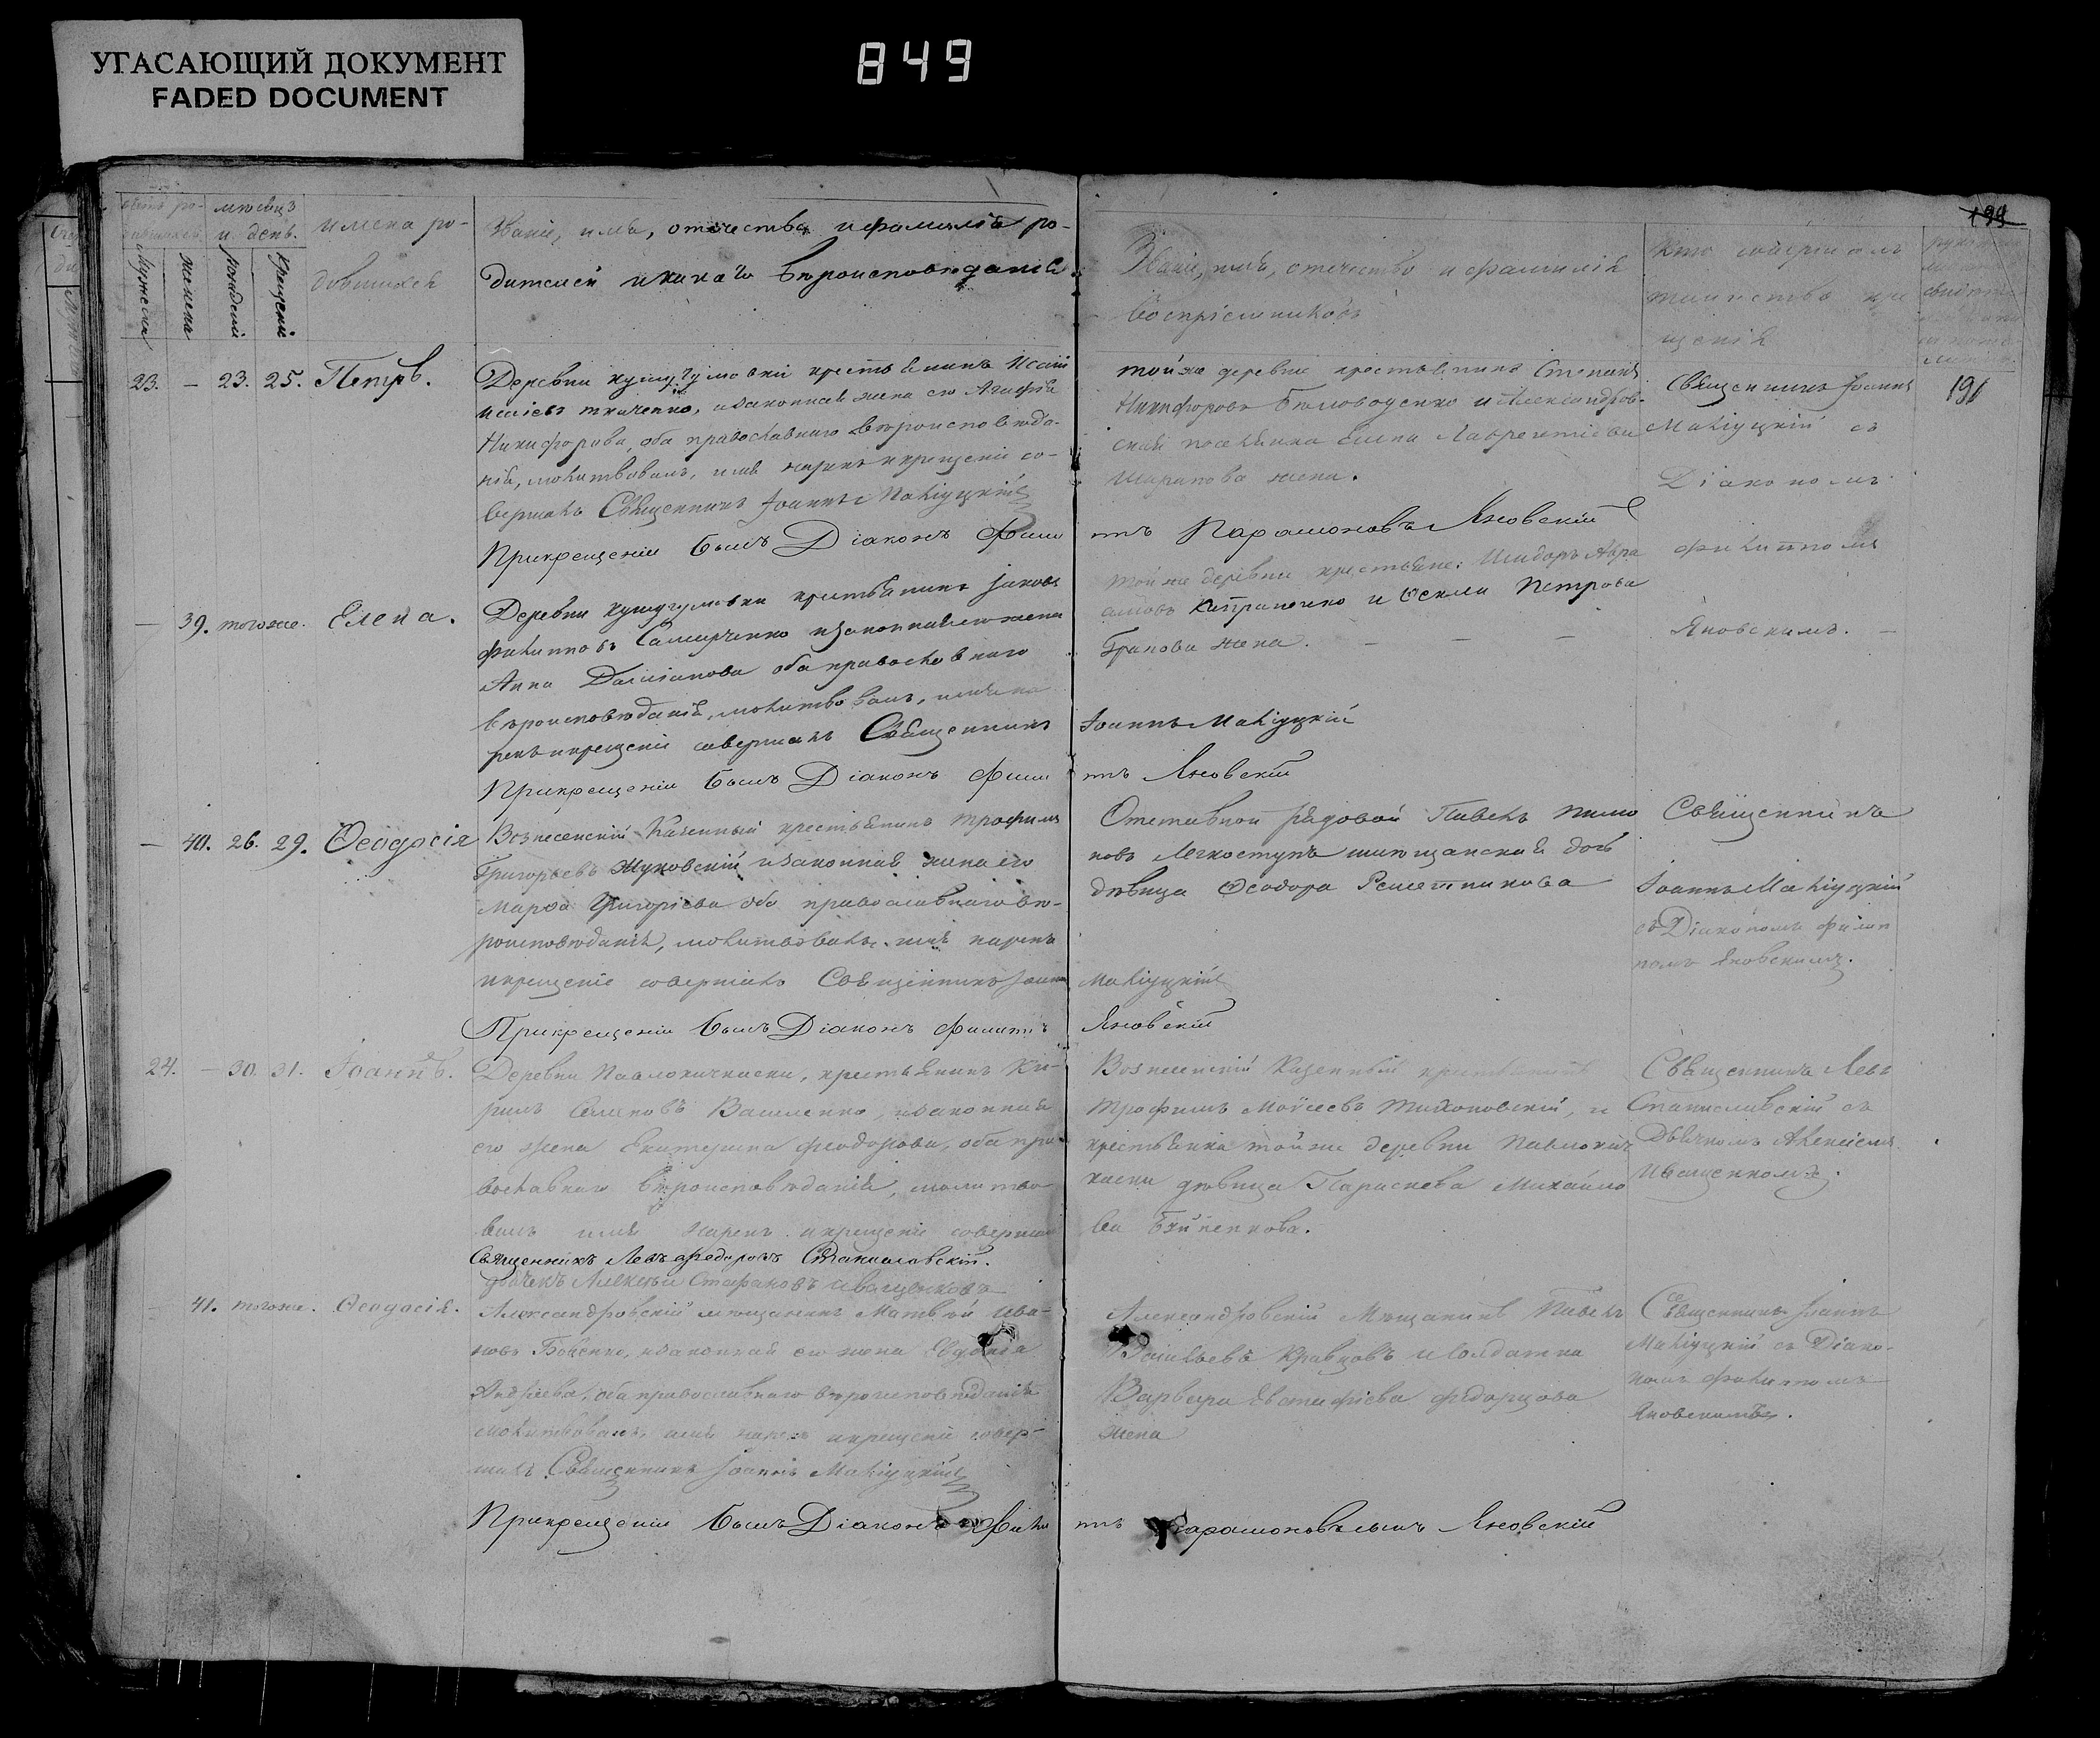 УГАСАЮЩИЙ ДОКУМЕНТ
FADED DOCUMENT
849
199
мѣсяцъ
и день.
имена ро-
дившихся
Званіе, имя, отчество и фамилія ро-
дителей и какого вѣроисповѣданія
Званіе, имя, отчество и фамилія
воспріемниковъ
Кто совершалъ
таинство кре
щенія
Мужеска
женска
рожденія
крещенія
23. — 23. 25. Петръ.
Деревни Кушугумовки крестьянинъ Исаій
Исаіевъ Ткаченко, и законная жена его Агафія
Никифорова, оба православнаго вѣроисповѣда-
нія, молитвовалъ, имя нарекъ и крещеніе со-
вершалъ Священникъ Іоаннъ Махіуцкій
При крещеніи былъ Діаконъ Фили
той же деревни крестьянинъ Стефанъ
Никифоровъ Бѣловоденко и Александров-
ская поселянка Елена Лаврентіева
Шарапова жена.
ппъ Парамоновъ Яновскій
Священникъ Іоаннъ
Махіуцкій съ
Діакономъ
191
— 39. тогоже. Елена.
Деревни Кушугумовки крестьянинъ Іаковъ
Филипповъ Самарченко и законная его жена
Анна Даміанова оба православнаго
вѣроисповѣданія, молитвовалъ, имя на
рекъ и крещеніе совершалъ Священникъ
При крещеніи былъ Діаконъ Фили
той же деревни крестьяне: Исидоръ Авра
амовъ и Ѳекла Петрова
жена. — — —
Іоаннъ Махіуцкій
ппъ Яновскій
Филиппомъ
Яновскимъ. —
— 40. 26. 29. Ѳеодосія
Вознесенскій Казенный крестьянинъ Трофимъ
Григорьевъ Жуковскій и законная жена его
Марѳа Григоріева оба православнаго вѣ-
роисповѣданія, молитвовалъ, имя нарекъ
и крещеніе совершалъ Священникъ Іоаннъ
При крещеніи былъ Діаконъ Филиппъ
Отставной рядовой Павелъ Пимо
новъ Легкоступъ и мѣщанская дочь
дѣвица Ѳеодора Решетникова
Махіуцкій
Яновскій
Священникъ
Іоаннъ Махіуцкій
съ Діакономъ Филип
помъ Яновскимъ.
24. — 30. 31. Іоаннъ.
Деревни Павлокичкаски, крестьянинъ Ки-
рилъ Семеновъ Василенко, и законная
его жена Екатерина Феодорова, оба пра-
вославнаго вѣроисповѣданія, молитво
валъ имя нарекъ и крещеніе совершалъ
Священникъ Левъ Федоровъ Станиславскій.
дьячекъ Алексѣй Стефановъ Иващенковъ
Вознесенскій Казенный крестьянинъ
Трофимъ Моисеевъ Тихоновскій, и
крестьянка той же деревни Павлокич
каски дѣвица Параскева Михайло
ва
Священникъ Левъ
Станиславскій съ
Дьячкомъ Алексіемъ
Иващенкомъ.
— 41. тогоже. Ѳеодосія.
Александровскій мѣщанинъ Матвѣй Ива-
новъ Бовенко, и законная его жена Евдокія
Андреева, оба православнаго вѣроисповѣданія
молитвовалъ, имя нарекъ и крещеніе совер-
шалъ Священникъ Іоаннъ Махіуцкій
При крещеніи былъ Діаконъ Фили
Александровскій Мѣщанинъ Павелъ
Васильевъ Кравцовъ и солдатка
Варвара Евстафіева Федорцова
жена
ппъ Яновскій
Священникъ Іоаннъ
Махіуцкій съ Діако-
номъ Филиппомъ
Яновскимъ.